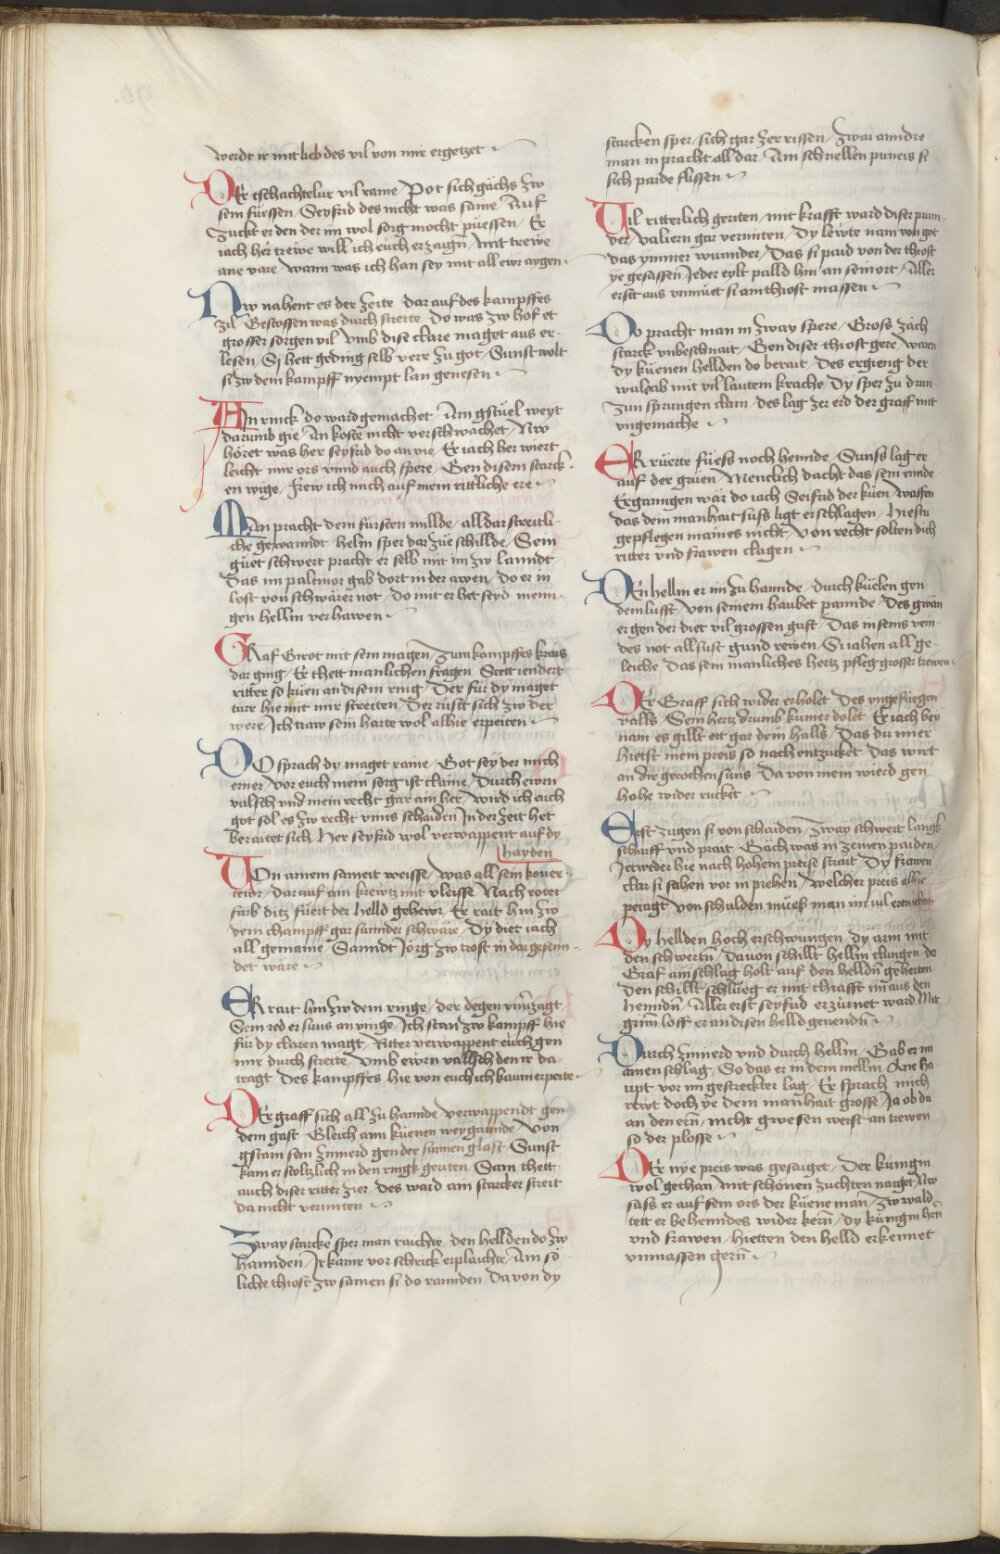 werdt ir mit lieb des vil von mir ergetzet
Der tschachtelur vil rame / Pot sich gächs zw
sein füessen / Seyfrid des nicht was same / Auf
zuckt er den der im wol sorg mocht püessen / Er
iach her trewe will ich euch erzaign / mit trewe
ane vare / wann was ich han sey mit all ewr aygen
Nw nahent es der zeite / dar auf des kampffes
zil / Gestossen was durch streite / do was zw hof et
grosser sorgen vil / vmb dise clare maget aus er-
lesen / Sy hett geding selb verr zu got / Sunst wolt
si zw dem kampff nyempt lan genesen
Ain rinck do ward gemachet / Am gstüel weyt
darumb gie / An koste nicht verschwachet / Nw
höret was her seyfrid do an vie / Er iach her wiert
leicht mir ors vnnd auch spere / Gen disem starck
en wige / frew ich mich auf mein rittliche ere
Man pracht dem fürsten millde / all dar streitli-
che gewanndt / helm sper dar zue schillde / Sein
guet schwert pracht er selb mit im zw lanndt
Das im paltinor gab dort in der awen / do er in
lost von schwärer not / do mit er het seyd meni-
gen hellm verhawen
Graf Girot mit sein magen / zum kampffes krais
dar ging / Er thett manlichen fragen / Stett iendert
ritter so küen an disem ring / Der für dy maget
ture hie mit mir streiten / Der rüst sich zw der
were / Ich traw sein harte wol alhie erpeiten
Do sprach dy maget raine / Got sey der mich
erner / vor euch mein sorg ist claine / Durch ewrn
valsch vnd mein recht gar ain her / wird ich euch
got sol es zw recht vnns schaiden / In der zeit het
beraitet sich / her seyfrid wol verwappent auf dy
hayden
Von ainem sameit weisse / was all sein kover-
tewr / dar auf ain krewtz mit vleisse / Nach roter
farb ditz fuert der helld gehewr / Er rait hin zw
dem champff gar sunnder schwäre / Dy diet iach
all gemaine / Sanndt Jörg zw trost in dar gesenn-
det wäre
Er rait hin zw dem ringe / der degen vnuerzagt
Sein red er suns an vinge / Ich stan zw kampff hie
für dy claren magt / Ritter verwappent euch gen
mir durch streite / vmb ewrn vallsch den ir da
tragt / Des kampffes hie von euch ich kaum erpeite
Der graff sich all zu hannde / verwappendt gen
dem gast / Gleich aim küenen weygannde / von
gstain sein zimierd gen der sunnen glast / Sunst
kam er stoltzlich in den ringk geriten / Sam thett
auch diser ritter zier / des ward ain starcker streit
da nicht vermiten
Zway starcke sper man raichte / den hellden do zw
hannden / Ir kainr vor schrick erplaichte / Am sö-
liche thiost zw samen si do rannden / Da von dy
starcken sper / sich gar zer rissen / Zwai anndre
man in pracht all dar / Am schnellen puneis si
sich paide flissen
Vil ritterlich geriten / mit krafft ward diser punn-
der / Valiern gar vermiten / Dy lewte nam von got
das ymmer wunnder / Das si paid von der thiost
ye gesassen / Jeder eylt palld hin an sein ort / Aller
erst aus vnmuet si am thiost massen
Do pracht man in zway spere / Gross zäch
starck vnbeschnait / Gen diser thiost gere / waren
dy küenen hellden do berait / Des ergieng der
valeab mit vil lautem krache / Dy sper zu drun-
zun sprungen clain / des lag zer erd der graff mit
vngemache
Er rüerte füess noch hennde / Sunss lag er
auf der grüen / Menclich dacht das sein ennde
Ergangen wär do iach Seifrid der küen / waffen
das dein manhait suss ligt erschlagen / hiestu
gepflegen maines nicht / von recht solten dich
ritter vnd frawen clagen
Den hellm er im zu hannde / durch küelen gen
dem lufft / von seinem haubet pannde / Des gwan
er gen der diet vil grossen gust / Das in seins vein-
des not allsust gund rewen / Si iahen all ge-
leiche / Das sein manliches hertz pfleg grosser trewen
Der Graff sich wider erholet / Des vngefuegen
valls / Sein hertz drumb kumer dolet / Er iach bey
nam es gillt eit gar dein halls / Das du mier
hietst mein preis so nach entzucket / Das wirt
an dir gerochen suns / Da von mein wierd gen
hohe wider rucket
Erst zugen si von schaiden / Zway schwert langk
scharff vnd prait / Gäch was in zeinen paiden
Jetweder hie nach hohem preise strait / Dy frawen
clar si sahen vor in prehen / welcher preis alhie
peiagt / von schulden müess man im vil eren iehen
Dy hellden hoch erschwungen / dy arm mit
den schwertn / Davon schillt hellm clungen / der
Graf ain schlag holt auf den helldn geherten
Den schillt schlueg er mit chrafft im aus den
henndn / Aller erst seyfrid erzürnet ward / Mit
grim loff er an disen helld genendn
Durch zimierd vnd durch hellm / Gab er im
ainen schlag / So das er in dem mellm / Ane ha-
upt vor im gestreckter lag / Er sprach mich
rewt doch ye dein manhait grosse / Ja ob du
an den ern / nicht gwesen werst an trewen
so der plosse
Der nye preis was gesaiget / Der künigin
wol gethan / mit schönen zuchten naiget / Nw
sass er auf sein ors der küene man / Zw wald
tett er behenndes wider kern / dy künigin hern
vnd frawen / hietten den helld erkennet
vnmassen gern